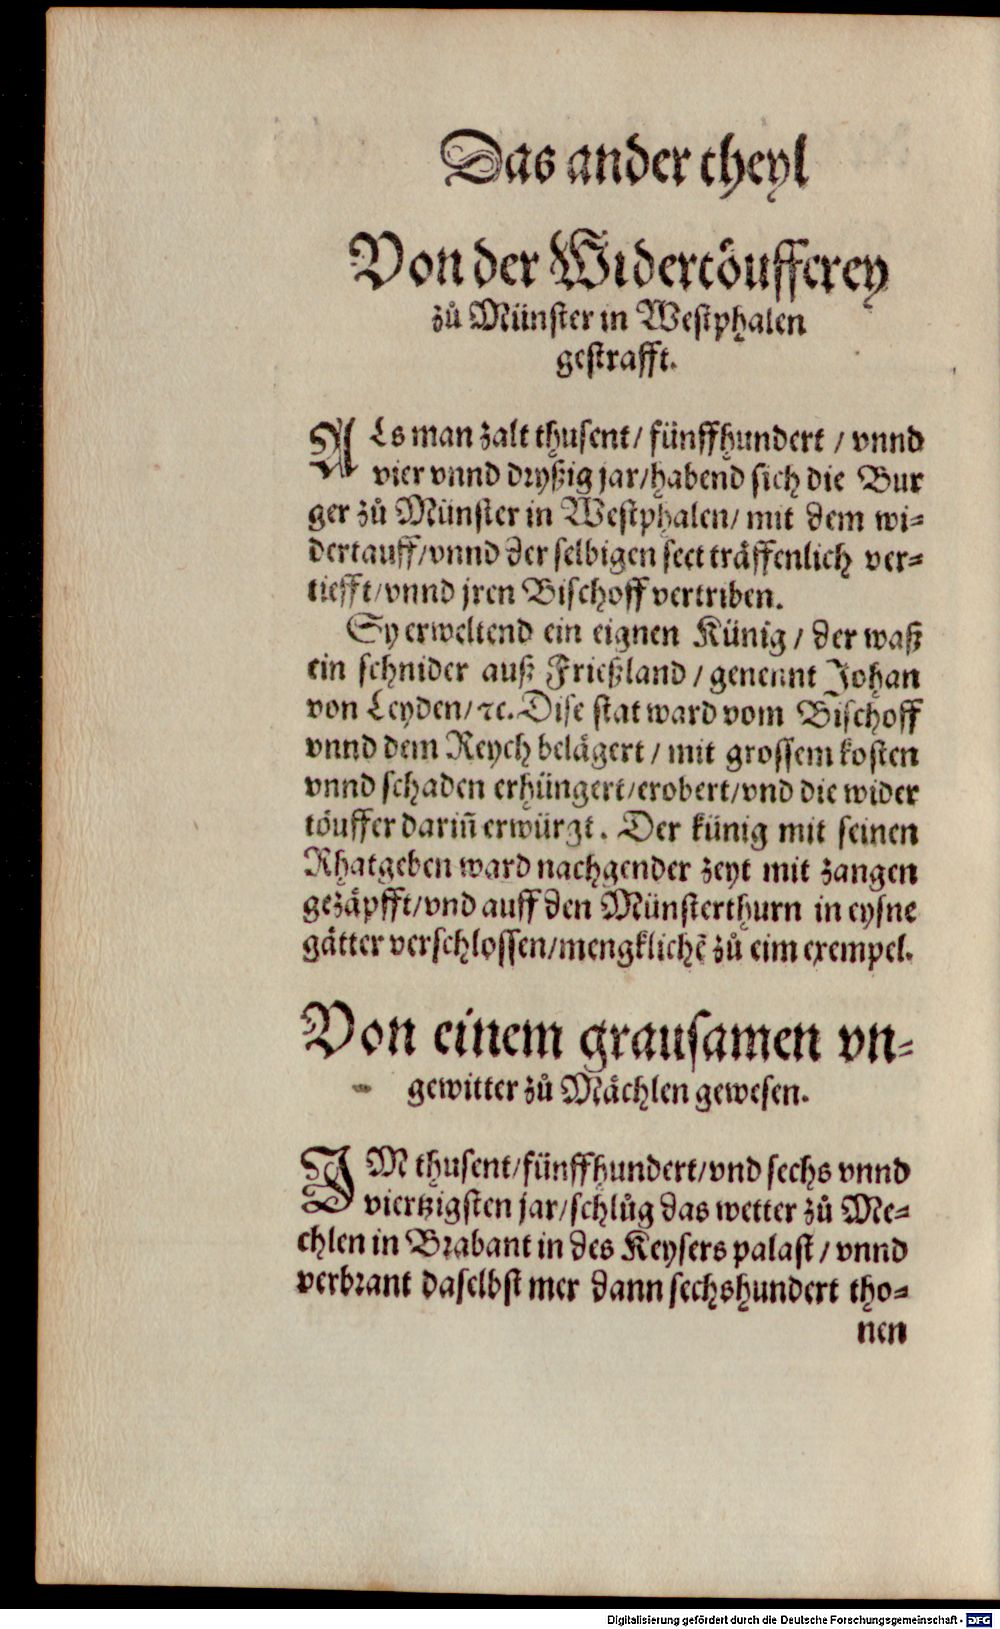 Das ander theyl
Von der Widertöufferey
zů Münster in Westphalen
gestrafft.
ALs man zalt thusent/ fünffhundert / vnnd
vier vnnd dryßig jar/habend sich die Bur
ger zů Münster in Westphalen/ mit dem wi-
dertauff/vnnd der selbigen sect träffenlich ver-
tiefft/vnnd jren Bischoff vertriben.
Sy erweltend ein eignen Künig / der waß
ein schnider auß Frießland / genennt Johan
von Leyden/ ꝛc. Dise stat ward vom Bischoff
vnnd dem Reych belägert / mit grossem kosten
vnnd schaden erhüngert/erobert/vnd die wider
töuffer dariñ erwürgt. Der künig mit seinen
Rhatgeben ward nachgender zeyt mit zangen
gezäpfft/vnd auff den Münsterthurn in eysne
gätter verschlossen/mengklichẽ zů eim exempel.
Von einem grausamen vn-
gewitter zů Mächlen gewesen.
IM thusent/fünffhundert/vnd sechs vnnd
viertzigsten jar/schlůg das wetter zů Me-
chlen in Brabant in des Keysers palast / vnnd
verbrant daselbst mer dann sechshundert tho-
nen
Digitalisierung gefördert durch die Deutsche Forschungsgemeinschaft - DFG